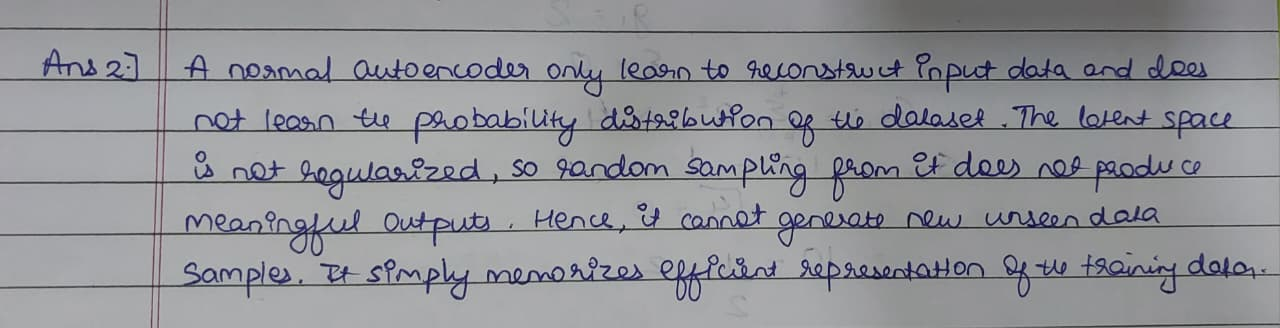 Ans 2:] A normal autoencoder only learn to reconstruct input data and does
not learn the probability distribution of the dataset. The latent space
is not regularized, so random sampling from it does not produce
meaningful outputs. Hence, it cannot generate new unseen data
samples. It simply memorizes efficient representation of the training data.